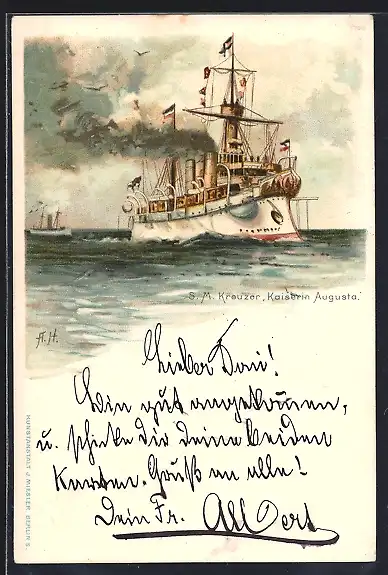 S. M. Kreuzer „Kaiserin Augusta.“
A. H.
Lieber
gut angekommen,
u. schicke dir deine beiden
Karten. Gruß an alle!
Dein Fr. Albert
KUNSTANSTALT J. MIESLER BERLIN S.